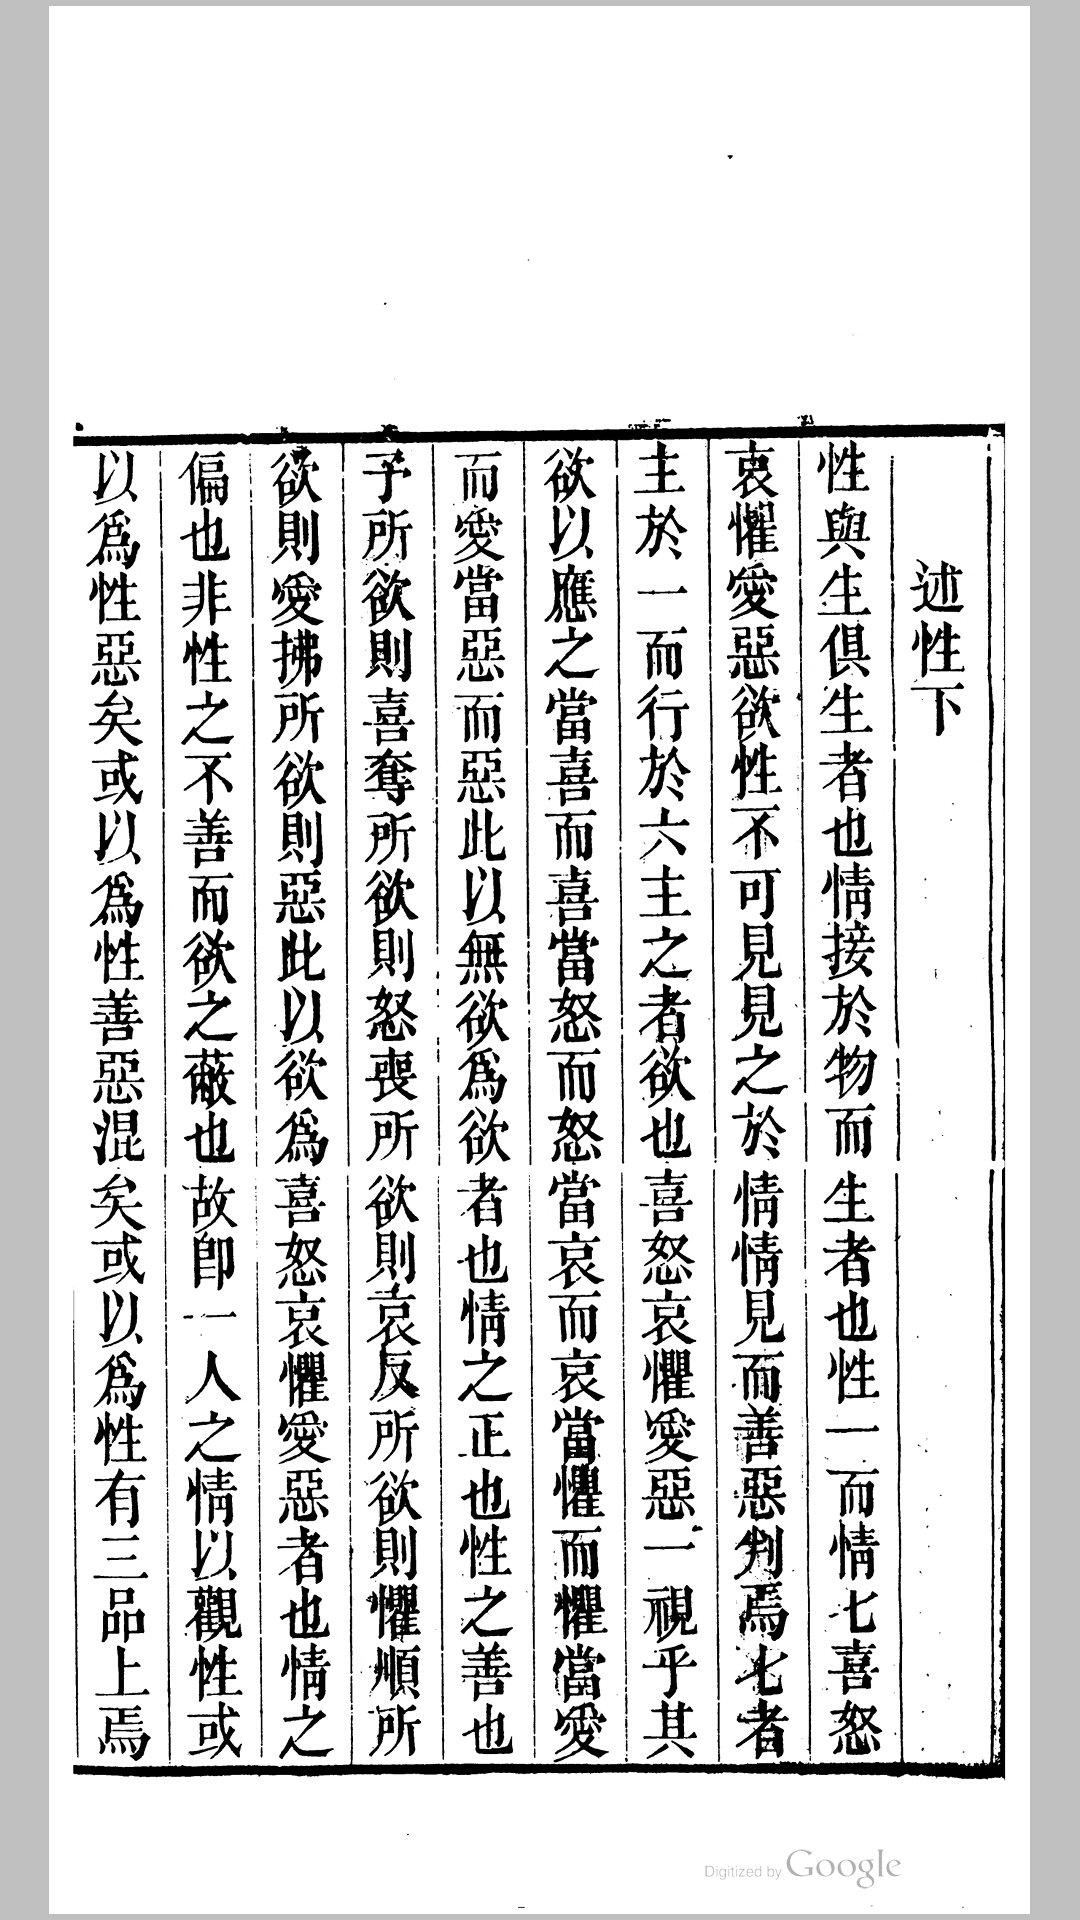 述性下
性與生俱生者也情接於物而生者也性一而情七喜怒
哀懼愛惡欲性不可見見之於情情見而善惡判焉七者
主於一而行於六主之者欲也喜怒哀懼愛惡一視乎其
欲以應之當喜而喜當怒而怒當哀而哀當懼而懼當愛
而愛當惡而惡此以無欲爲欲者也情之正也性之善也
予所欲則喜奪所欲則怒喪所欲則哀反所欲則懼順所
欲則愛拂所欲則惡此以欲爲喜怒哀懼愛惡者也情之
偏也非性之不善而欲之蔽也故卽一人之情以觀性或
以爲性惡矣或以爲性善惡混矣或以爲性有三品上焉
Digitized by Google